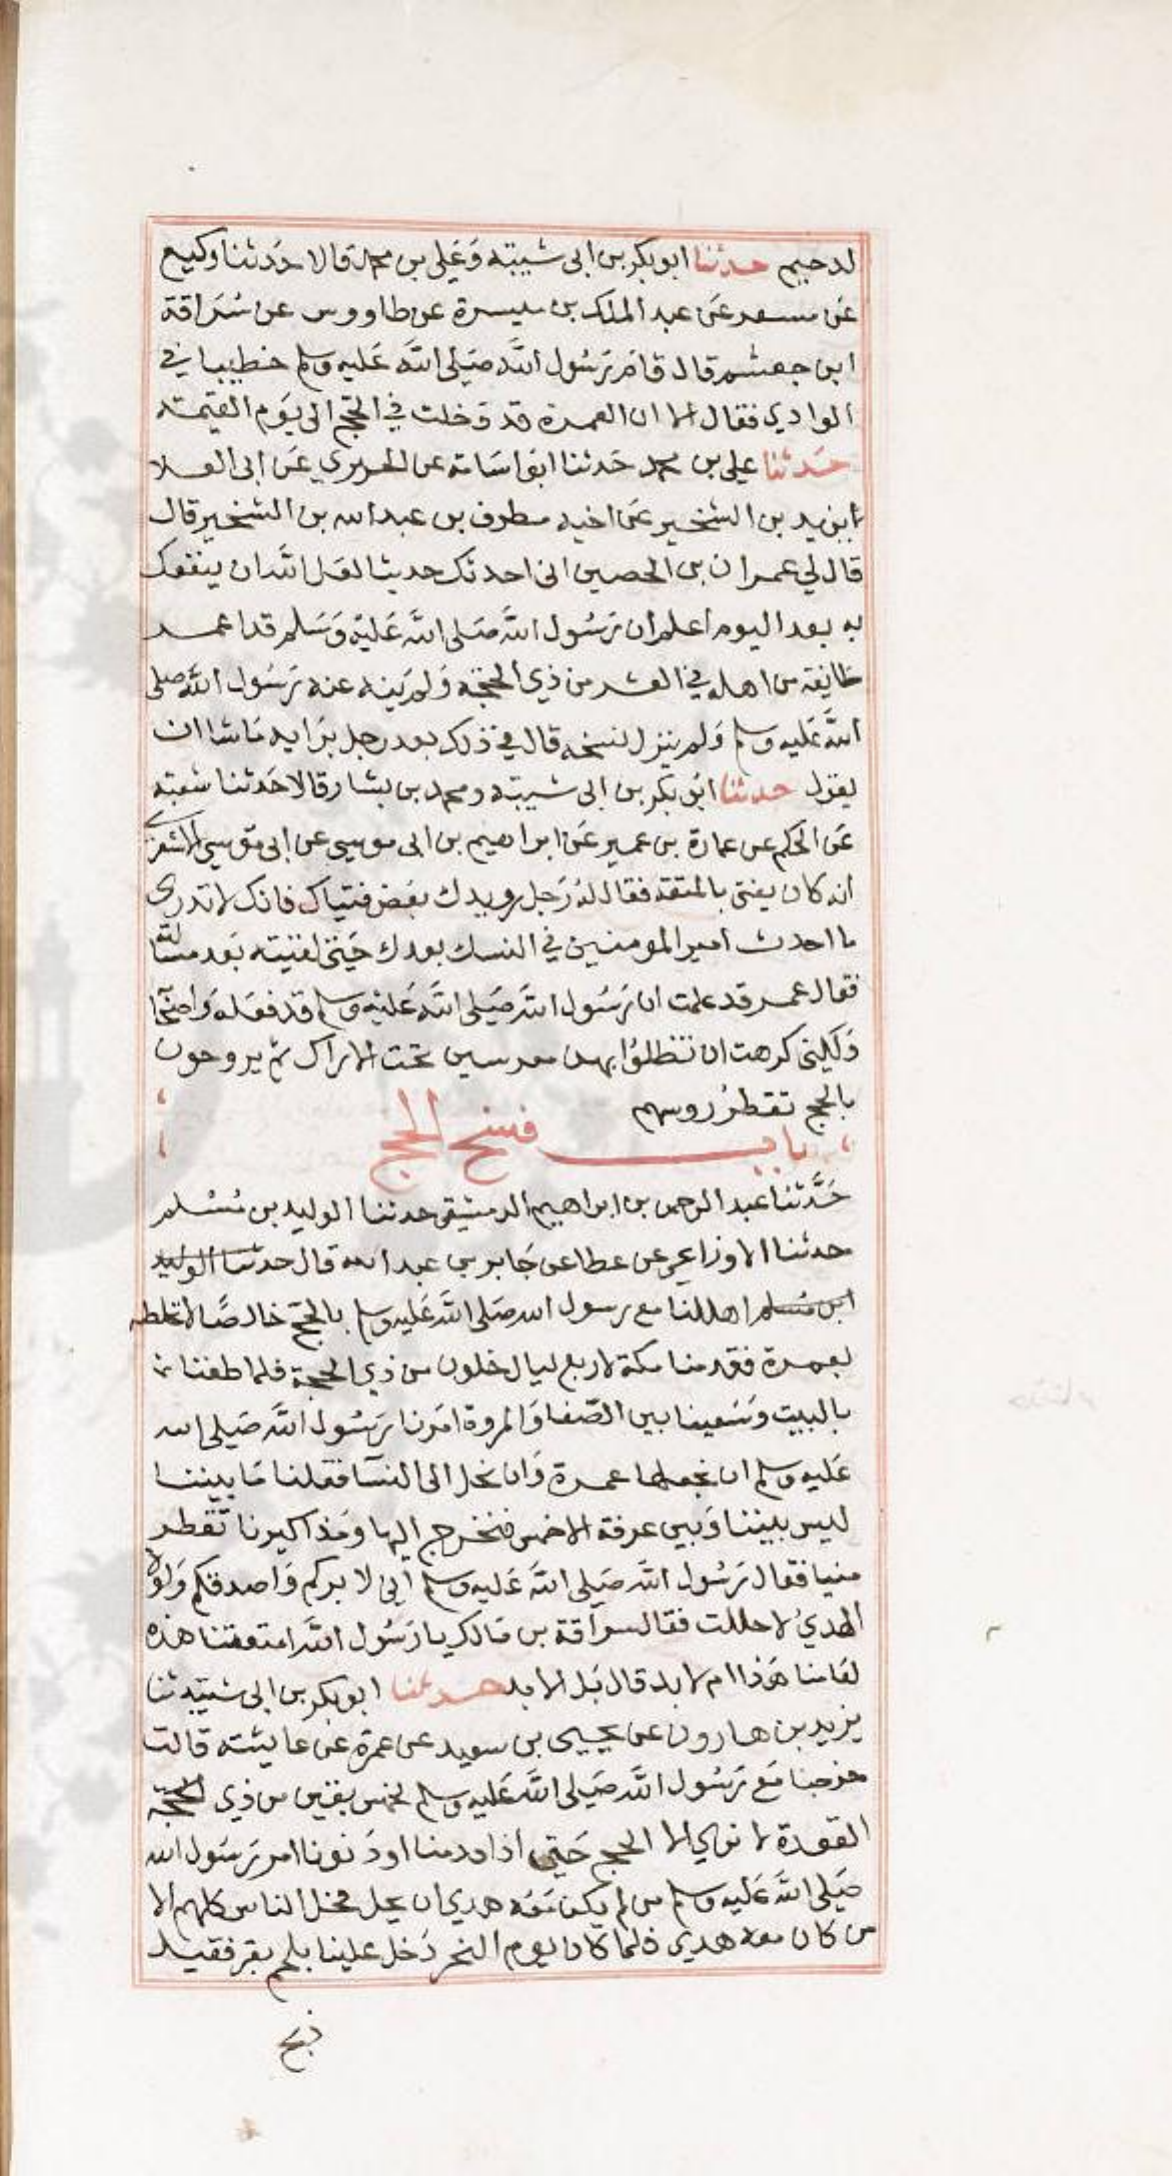 لدحيم حدثنا ابو بكر بن ابى شيبته وَعَلى بن محمد قالا حَدثنا وكيع
عَن مسعر عَن عبد الملك بن ميسرة عن طاووس عن سُراقة
ابن جعشم قال قام رَسُول اللَّه صَلى اللَّه عَليه وسلم خطيبا في
الوادي فقال الا ان العمرة قد دَخلت في الحَج الى يَوم القيمته
حَدثنا على بن محمد حَدثنا ابوا سَامة عن الحريري عَن ابى العلا
يزيد بن الشخير عَن اخيه مطرف بن عبد الله بن الشخير قال
قال لي عمران بن الحصين انى احدثك حديثا لعَل اللَّه ان ينفعك
به بعد اليوم اعلم ان رَسُول اللَّه صَلى اللَّه عَليْه وَسَلم قد اعمر
طايفة من اهله في العشر من ذي الحجة وَلم يَنه عنه رَسُول اللَّه صلى
اللَّه عَليه وسلم وَلم ينزل نسخه قال في ذلك بعد رجل برَايه مَا شا ان
يقول حدثنا ابُو بكر بن ابى شيبته ومحمد بن بشار قالا حَدثنا شعبته
عَن الحكم عن عمارة بن عمير عَن ابراهيم بن ابى موسى عن ابى مُوسي الاشعري
انه كان يفتى بالمتعة فقال لهُ رَجل رويدك بعَض فتياك فانك لا تدرى
ما احدث امير المومنين في النسك بعدك حَتى لقيته بَعد مسالته
فقال عمر قد علمت ان رَسُول اللَّه صَلى اللَّه عَليْه وسلم قد فعَله وَاصحَابه
وَلكِنى كرهت ان تظلوُا بهن معرسين تحت الاراك ثم يروحون
بالحج تقطرُ روسهم
باب فسخ الحج
حَدَّثنا عبد الرحمن بن ابراهيم الدمشقى حدثنا الوليد بن مُسْلم
حدثنا الاوزاعي عن عطا عن جَابر بن عبد الله قال حدثنا الوليد
ابن مُسلم اهللنا مع رسول الله صَلى اللَّه عَليه وسلم بالحَج خالصًا لا نخلطه
بعمرة فقدمنا مكة لاربع ليال خلون من ذي الحجة فلما طفنا
بالبيت وَسَعينا بين الصّفا وَالمروة امَرنا رَسُول اللَّه صَلى الله
عَليه وسلم ان نجعلها عمرة وَان نحل الى النسآ فقلنا مَا بيننا
ليس بيننا وَبين عرفة الا خمس فنخرج اليها وَمذاكيرنا تَقطر
منيا فقال رَسُول اللَّه صَلى اللَّه عَليه وسلم انى لا بركم وَاصدقكم وَلولا
الهديُ لاحللت فقال سرآقة بن مَالك يا رَسُول اللَّه امتعتنا هذه
لعَامنا هَذا ام لابد قال بَل لابد حدثنا ابو بكر بن ابى شيبته ثنا
يزيد بن هارون عن يحيى بن سعيد عن عمرة عَن عايشته قالت
خرجنا مَع رَسُول اللَّه صَلى اللَّه عَليه وسلم لخمس بقين من ذي الحجة
القعدة لا نري الا الحج حَتى اذا قدمنا اودَنونا امر رَسُول الله
صَلى اللَّه عَليه وسلم من لم يكن مَعَه هدي ان يحل فحل الناس كلهم الا
من كان معه هدي فلما كان يوم النحر دَخل علينا بلحم بقر فقيل
ذبح